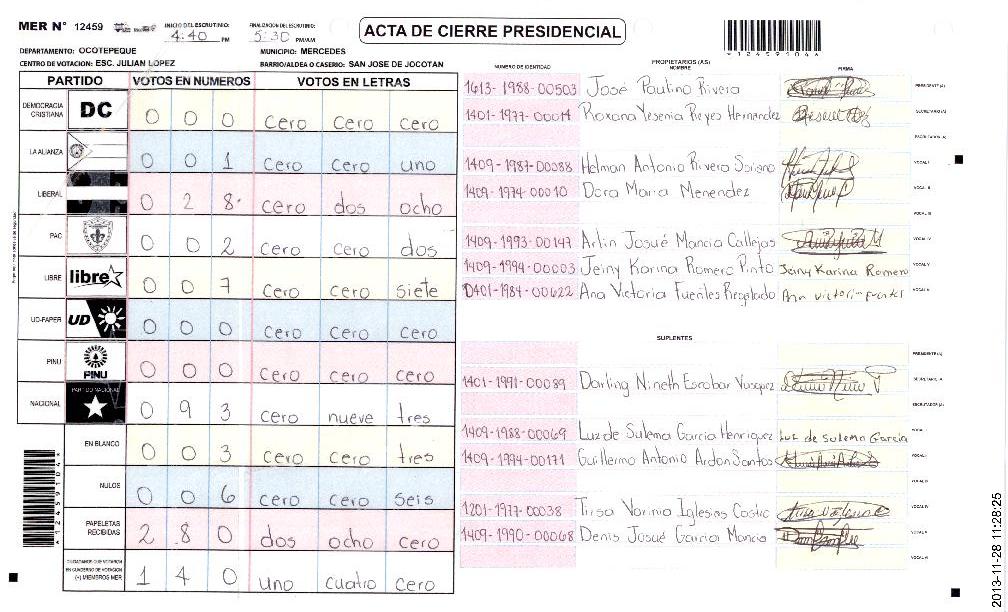 MER N° 12459 INICIO DEL ESCRUTINIO: 4:40 PM FINALIZACION DEL ESCRUTINIO: 5:30 PM/AM
ACTA DE CIERRE PRESIDENCIAL
*12459104*
DEPARTAMENTO: OCOTEPEQUE MUNICIPIO: MERCEDES
CENTRO DE VOTACION: ESC. JULIAN LOPEZ BARRIO/ALDEA O CASERIO: SAN JOSE DE JOCOTAN
PARTIDO VOTOS EN NUMEROS VOTOS EN LETRAS
DEMOCRACIA CRISTIANA DC 0 0 0 cero cero cero
LA ALIANZA 0 0 1 cero cero uno
LIBERAL 0 2 8 cero dos ocho
PAC 0 0 2 cero cero dos
LIBRE libre 0 0 7 cero cero siete
UD-FAPER UD 0 0 0 cero cero cero
PINU PINU 0 0 0 cero cero cero
NACIONAL PARTIDO NACIONAL 0 9 3 cero nueve tres
EN BLANCO 0 0 3 cero cero tres
NULOS 0 0 6 cero cero seis
PAPELETAS RECIBIDAS 2 8 0 dos ocho cero
CIUDADANOS QUE VOTARON EN CUADERNO DE VOTACION (+) MIEMBROS MER 1 4 0 uno cuatro cero
*12459104*
NUMERO DE IDENTIDAD PROPIETARIOS (AS) NOMBRE FIRMA
1413-1988-00503 José Paulino Rivera PRESIDENTE (A)
1401-1977-00014 Roxana Yesenia Reyes Hernandez SECRETARIO (A)
ESCRUTADOR (A)
1409-1987-00088 Helman Antonio Rivera Soriano VOCAL I
1409-1974-00010 Dora Maria Menendez VOCAL II
VOCAL III
1409-1993-00147 Arlin Josué Mancia Callejas VOCAL IV
1409-1994-00003 Jeiny Karina Romero Pinto Jeiny Karina Romero VOCAL V
0401-1984-00622 Ana Victoria Fuentes Ana victoria fuentes
SUPLENTES
PRESIDENTE (A)
1401-1991-00089 Darling Nineth Escobar Vasquez SECRETARIO (A)
ESCRUTADOR (A)
1409-1988-00069 Luz de Sulema Garcia Henriquez Luz de Sulema Garcia
1409-1994-00171 Guillermo Antonio Ardon Santos
1201-1977-00038 Tirsa Yaninia Iglesias VOCAL IV
1409-1990-00068 Denis Josué Garcia Mancia
2013-11-28 11:28:25